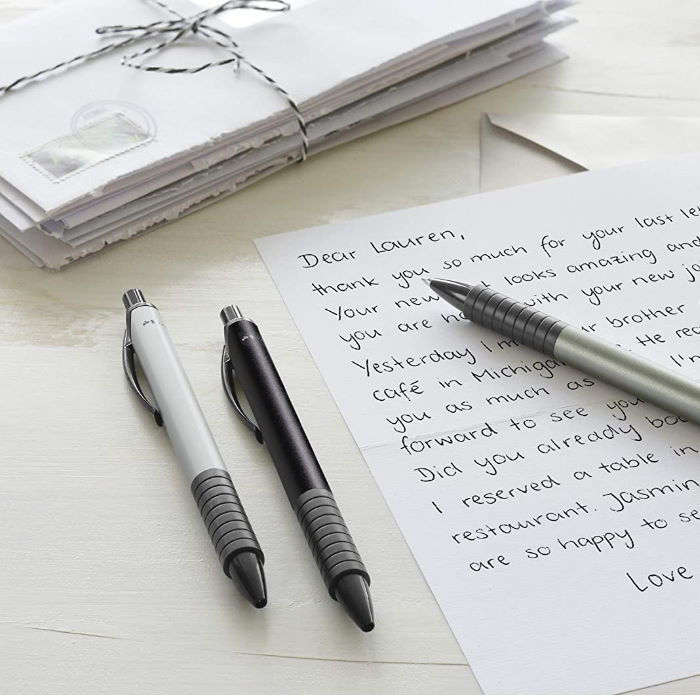 Dear Lauren,
thank you so much for your last
Your new looks amazing and
you are with your new
Yesterday I your brother
café in Michigan He
you as much as I'm
forward to see you
Did you already
I reserved a table in
restaurant. Jasmin
are so happy to
Love